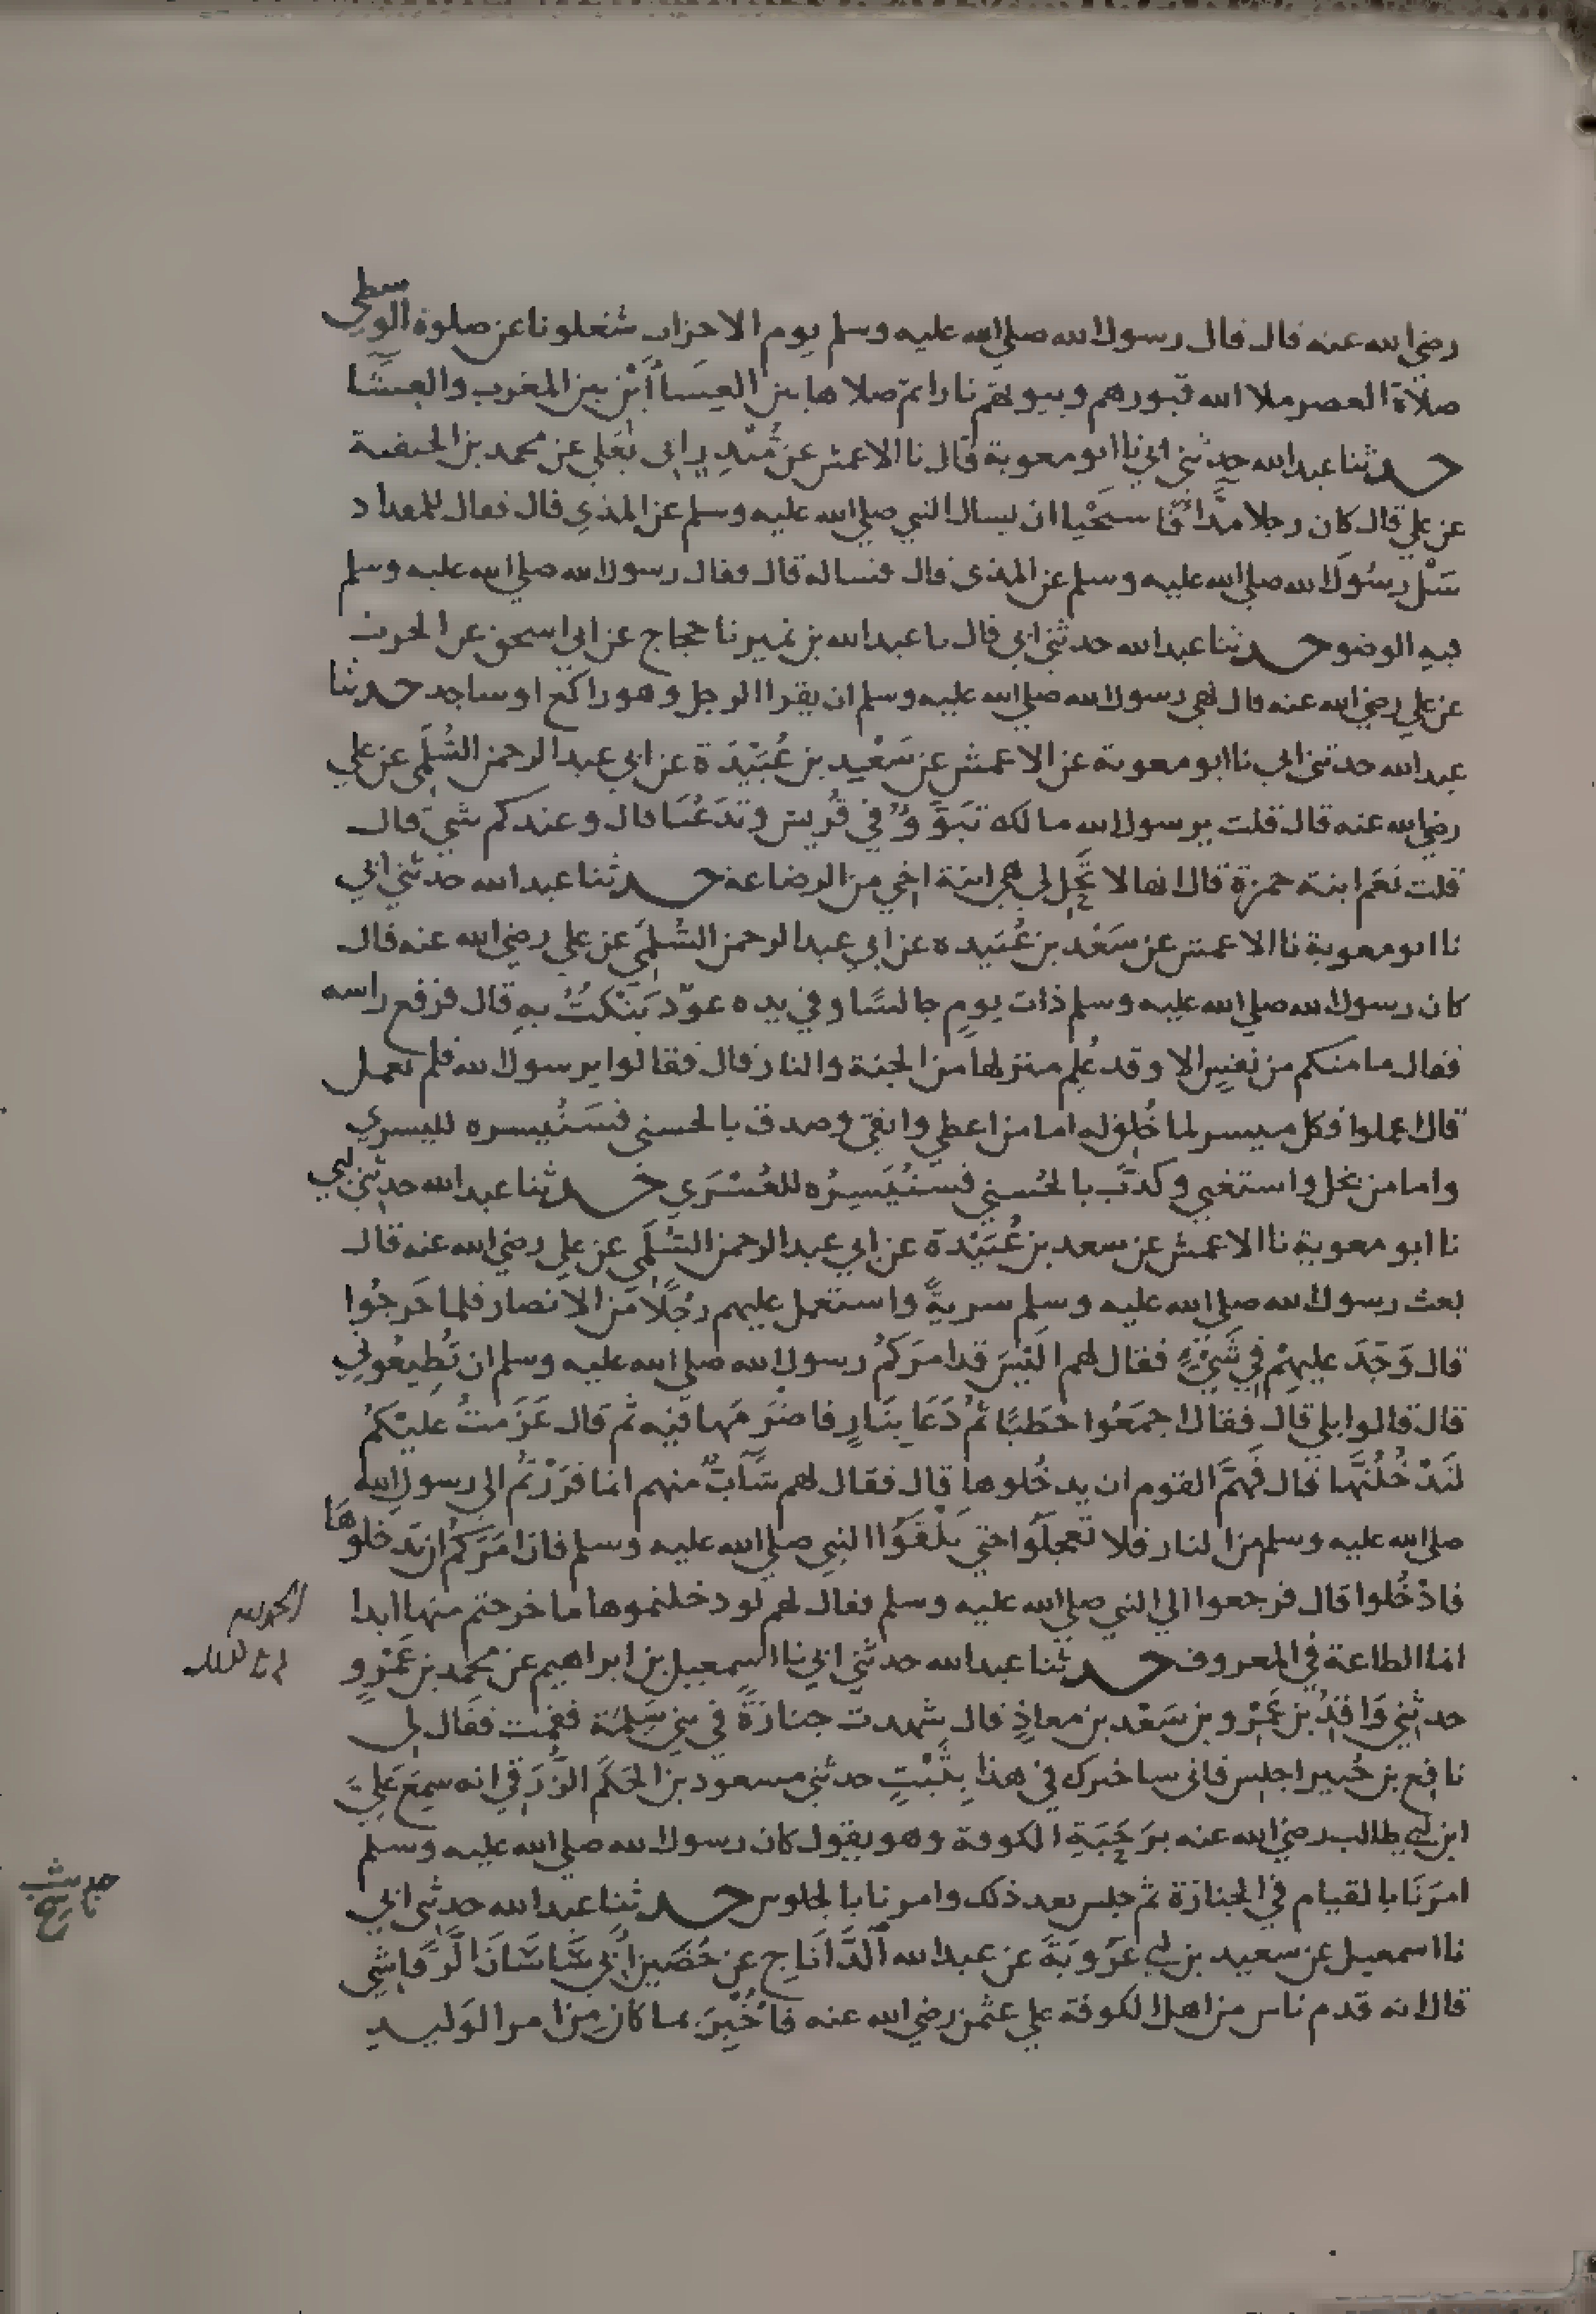 رضي الله عنه قال قال رسول الله صلي الله عليه وسلم يوم الاحزاب شغلونا عن صلوة الوسطي
صلاة العصر ملا الله قبورهم وبيوتهم نارا ثم صلاها بين العشاأين بين المغرب والعشا
حدثنا عبد الله حدثني ابي نا ابو معوية قال نا الاعمش عن مُنْذِر ابي يَعْلي عن محمد بن الحنفية
عن علي قال كان رجلا مذّاءً فاستحيا ان يسال النبي صلي الله عليه وسلم عن المذي قال فقال للمقداد
سَلْ رسُولَ الله صلي الله عليه وسلم عن المذي قال فساله قال فقال رسول الله صلي الله عليه وسلم
فيه الوضو حدثنا عبد الله حدثني ابي قال نا عبد الله بن نمير نا حجاج عن ابي اسحق عن الحرث
عن علي رضي الله عنه قال نهي رسول الله صلي الله عليه وسلم ان يقرا الرجل وهو راكع او ساجد حدثنا
عبد الله حدثني ابي نا ابو معوية عن الاعمش عن سَعْيد بن عُبَيْدَة عن ابي عبد الرحمن السُّلَمِي عن علي
رضي الله عنه قال قلت يرسول الله مالك تَنَوَّقُ في قُريش وتَدَعُنَا قال وعندكم شيٌ قال
قلت نعَم ابنة حمزة قال انها لا تَحِل لي هي ابنة اخي من الرضاعة حدثنا عبد الله حدثني ابي
نا ابو معوية نا الاعمش عن سَعْد بن عُبَيده عن ابي عبد الرحمن السُلَمي عن علي رضي الله عنه قال
كان رسول الله صلي الله عليه وسلم ذات يومٍ جالسًا وفي يده عوّد يَنْكتُ بهِ قال فرفع راسه
فقال ما منكم من نفسٍ الا وقد عُلِم منزلها من الجنة والنار قال فقالوا يرسول الله فلم نعمل
قال اعملوا فكل ميسر لما خُلِق له اما من اعطي واتقي وصدق بالحسني فسَنُيسره لليسري
واما من بخل واستغني وكذّب بالحُسني فسَنُيَسِرُه للعُسْرَي حدثنا عبد الله حدثني ابي
نا ابو معوية نا الاعمش عن سعد بن عُبَيْدَة عن ابي عبد الرحمن السُّلَمي عن علي رضي الله عنه قال
بعث رسول الله صلي الله عليه وسلم سريةً واستعمل عليهم رجُلًا مِن الانصار فلما خَرجُوا
قال وَجَدَ عليهِمْ في شَيْءٍ فقال لهم الَيْسَ قد امرَكُم رسول الله صلي الله عليه وسلم ان تُطِيعُوني
قال قالوا بلي قال فقال اجمَعُوا حطَبًا ثُم دَعَا بِنَارٍ فاضْرَمَها فيه ثم قال عَزَمتُ عليْكُم
لَتَدْخُلُنَّها قال فَهَمَّ القوم ان يدخُلوها قال فقال لهم شَابٌ منهم انما فَرَرْتُم الي رسول الله
صلي الله عليه وسلم من النار فلا تعجَلَوا حتي تَلْقَوا النبي صلي الله عليه وسلم فان امَرَكُم ان تدخلوهَا
فادْخُلوا قال فرجعوا الي النبي صلي الله عليه وسلم فقال لهم لو دخلتموها ما خرجتم منها ابدا
انما الطاعة في المعروف حدثنا عبد الله حدثني ابي نا اسمعيل بن ابراهيم عن محمد بن عَمْرٍو
حدثني وَاقِدُ بن عَمْرو بن سَعْد بن معاذٍ قال شهدت جنازةً في بني سَلِمَة فقمت فقال لي
نافِع بن جُبير اجلس فاني ساخبرك في هذا بِثَبْتٍ حدثني مسعود بن الحَكَم الزُّرَقي انه سمِعَ عَلِيَّ
ابن ابي طالب رضي الله عنه برَحَبَةِ الكوفة وهو يقول كان رسول الله صلي الله عليه وسلم
امرَنَا بالقيام في الجنازة ثم جلس بعد ذلك وامرنا بالجلوس حدثنا عبد الله حدثني ابي
نا اسمعيل عن سعيد بن ابي عَرُوبَةَ عن عبد الله الدَّانَاج عن حُضَين ابي سَاسَانَ الرَّقَاشِي
قال انه قدم ناس من اهل الكوفة علي عثمن رضي الله عنه فاُخْبِرَ بما كان مِن امر الوَليد
الحمد لله